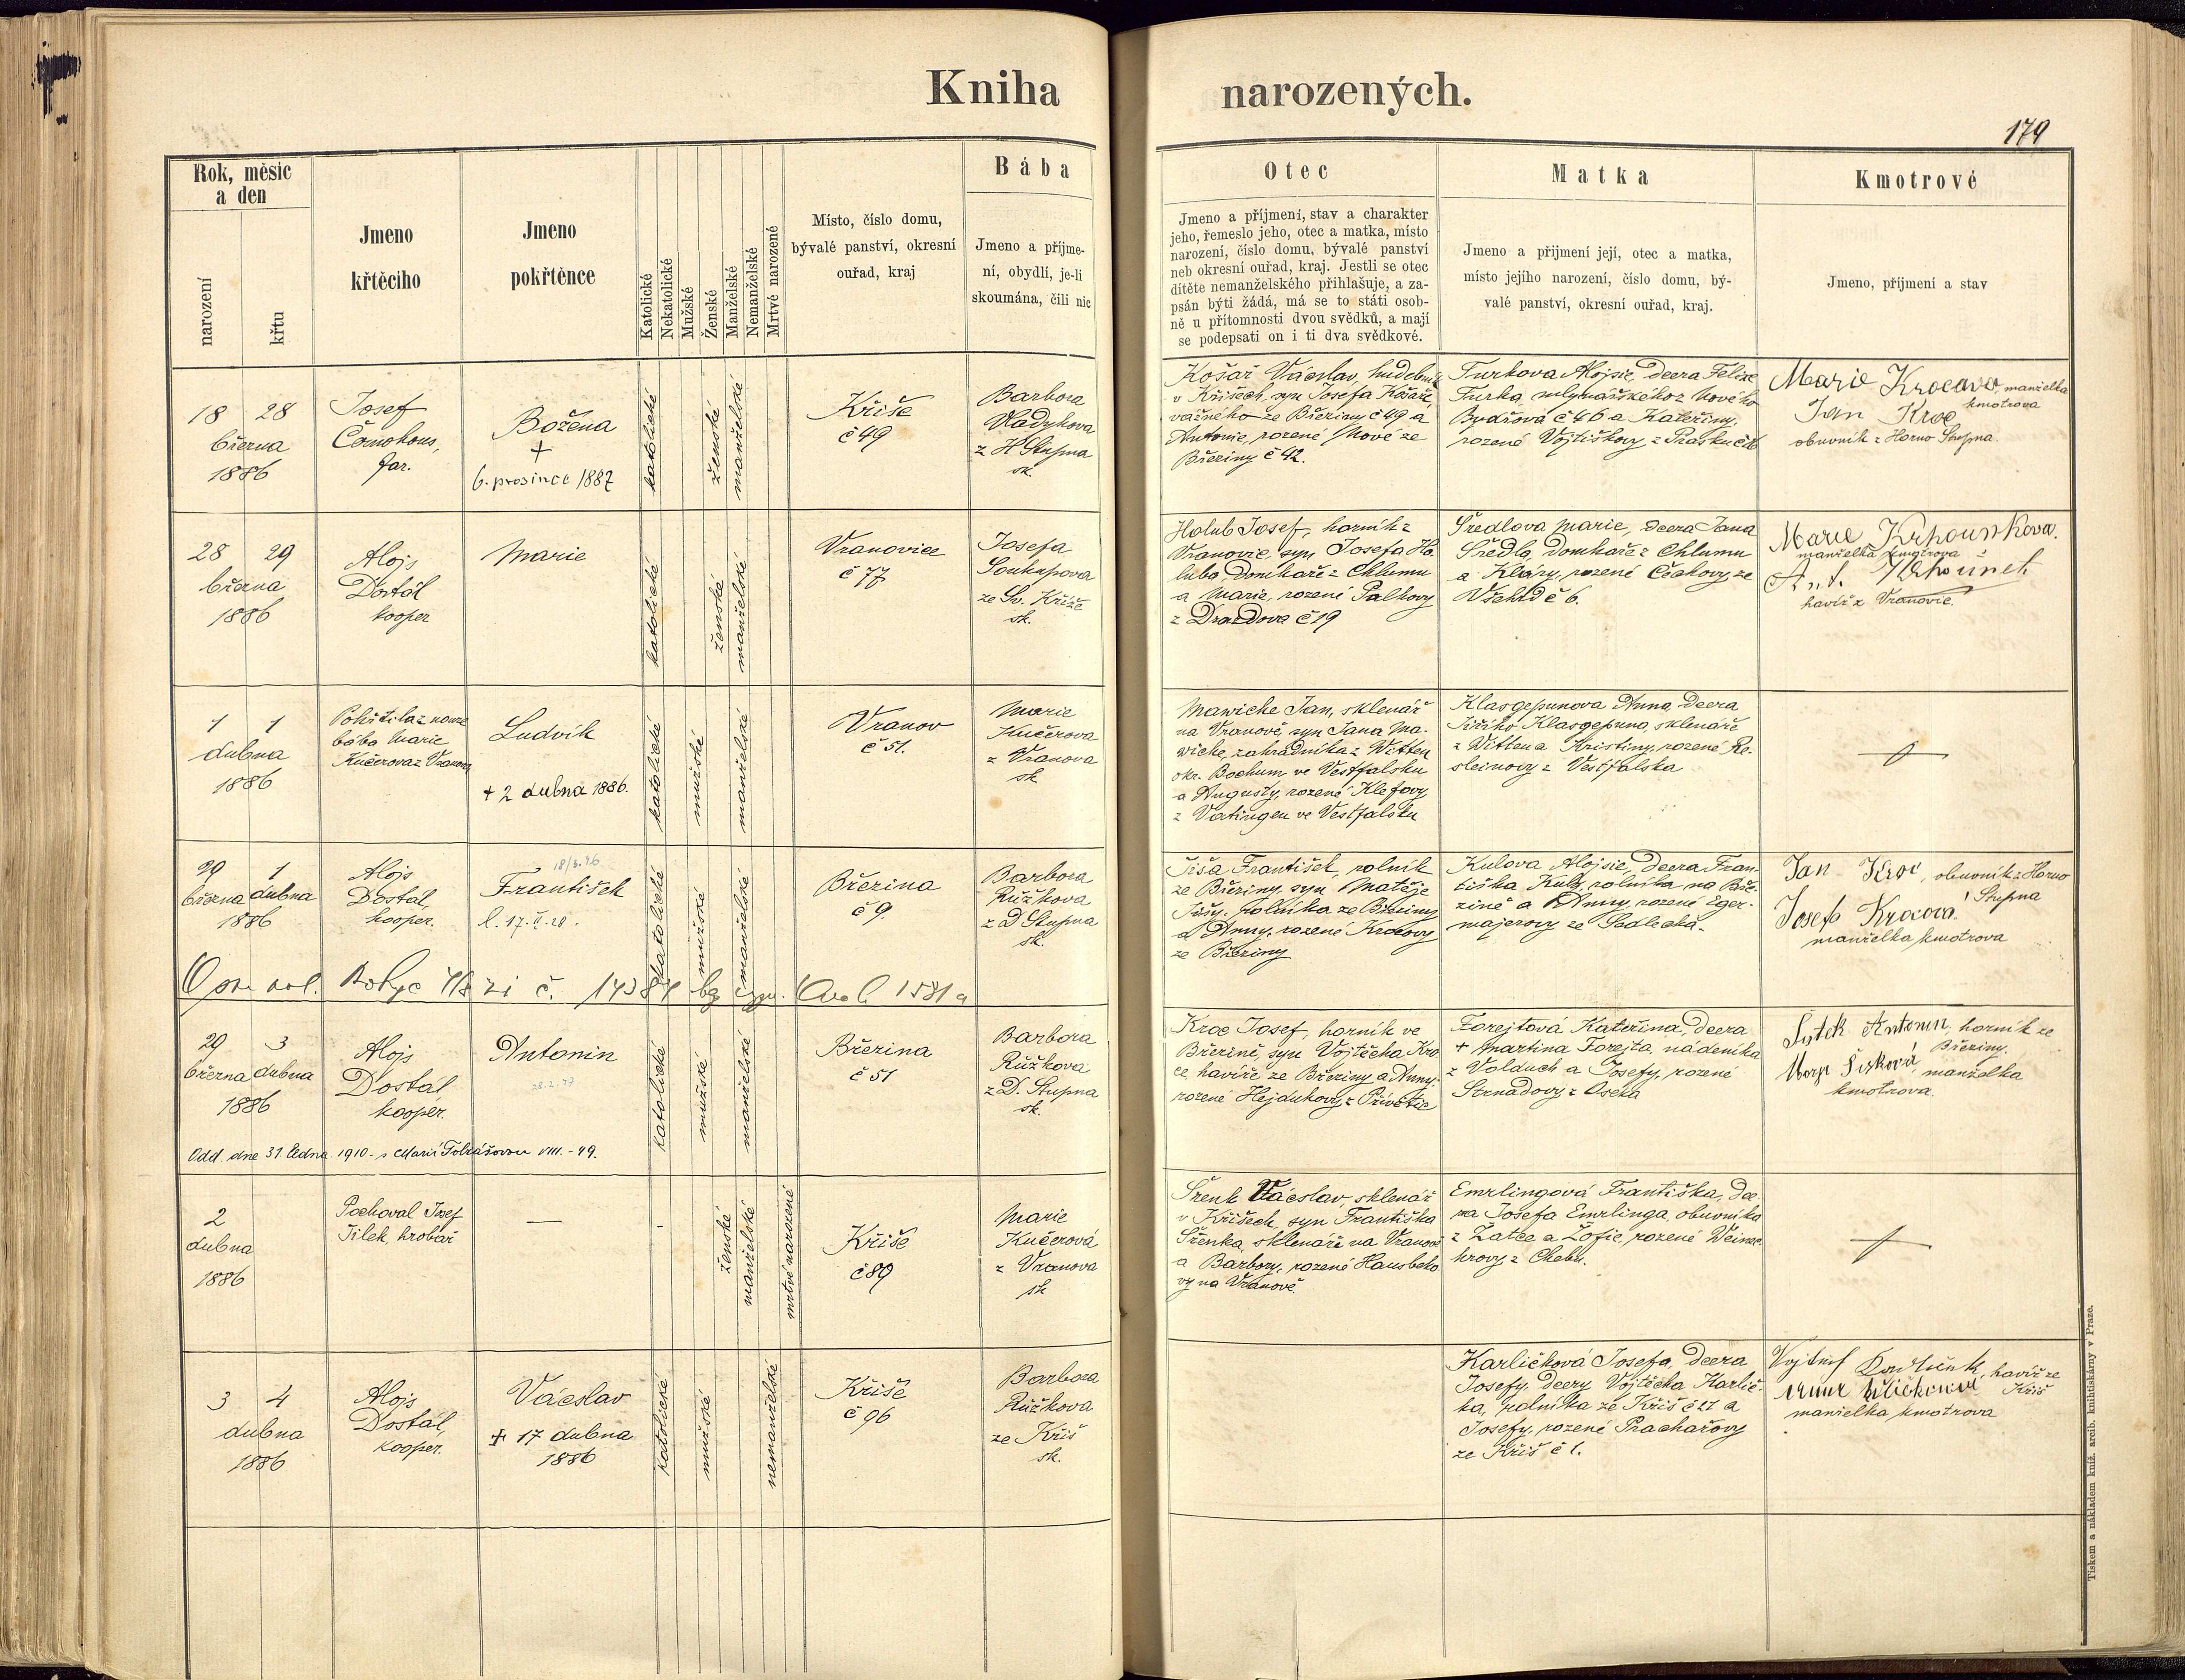 Kniha narozených.
179
Rok, měsíc
a den
narození
křtu
Jmeno
křtěcího
Jmeno
pokřtěnce
Katolické
Nekatolické
Mužské
Ženské
Manželské
Nemanželské
Mrtvé narozené
Místo, číslo domu,
bývalé panství, okresní
ouřad, kraj
Bába
Jmeno a příjme-
ní, obydlí, je-li
skoumána, čili nic
Otec
Jmeno a příjmení, stav a charakter
jeho, řemeslo jeho, otec a matka, místo
narození, číslo domu, bývalé panství
neb okresní ouřad, kraj. Jestli se otec
dítěte nemanželského přihlašuje, a za-
psán býti žádá, má se to státi osob-
ně u přítomnosti dvou svědků, a mají
se podepsati on i ti dva svědkové.
Matka
Jmeno a přijmení její, otec a matka,
místo jejího narození, číslo domu, bý-
valé panství, okresní ouřad, kraj.
Kmotrové
Jmeno, přijmení a stav
18 28
března
1886
Josef
Černohous,
far.
Božena
+
6. prosince 1887
katolické
ženské
manželské
Kříše
č 49
Barbora
Vladykova
z H. Stupna
sk.
Košař Václav, hudebník
v Kříšech, syn Josefa Košaře,
vážného ze Březiny č 49 a
Antonie, rozené Nové ze
Březiny č 42.
Turkova Alojsie, dcera Felixe
Turka, mlynářského z Nového
č 46 a Kateřiny,
rozené Vojtíškovy z
Marie Krocova, manželka
kmotrova
Jan Kroc
obuvník z Horno Stupna
28 29
března
1886
Alojs
Dostál
kooper
Marie
katolické
ženské
manželské
Vranovice
č 77
Josefa
Soukupova
ze Sv. Kříže
sk.
Holub Josef, horník z
Vranovic, syn Josefa Ho-
luba, domkaře z Chlumu
a Marie, rozené Palkovy
z Drazdova č 19
Šredlova Marie, dcera Jana
Šredla, domkaře z Chlumu
a Kláry, rozené Čechovy ze
Všehrd č 6.
Marie Krhounkova.
manželka kmotrova
Ant. Krhounek
havíř z Vranovic.
1 1
dubna
1886
Pokřtila z nouze
bába Marie
Kučerova z Vranova
Ludvík
+ 2 dubna 1886.
katolické
mužské
manželské
Vranov
č 51.
Marie
Kučerova
z Vranova
sk
Mawicke Jan, sklenář
na Vranově, syn Jana Ma-
wicke, zahradníka z Witten
okr. Bochum ve Vestfalsku
a Augusty, rozené Klefovy
z Vatingen ve Vestfalsku
Klasgepunova Anna, dcera
Jiřího Klasgepuna, sklenáře
z Witten a Kristiny, rozené Re-
sleinovy z Vestfalska
29 1
března dubna
1886
Alojs
Dostál,
kooper.
18/3.46
František
l. 17. II. 28.
katolické
mužské
manželské
Březina
č 9.
Barbora
Růžkova
z D Stupna
sk.
Jíša František, rolník
ze Březiny, syn Matěje
Jíšy, rolníka ze Březiny
a Anny, rozené Krocovy
ze Březiny
Kulova Alojsie, dcera Fran-
tiška Kuly, rolníka na Bře-
zině a Anny, rozené Eger-
majerovy ze Sedlecka.
Jan Kroc, obuvník z Horno
Stupna
Josefa Krocová
manželka kmotrova
29 3
března dubna
1886
Alojs
Dostál
kooper.
Antonín
28.2.47
katolické
mužské
manželské
Březina
č 51
Barbora
Růžkova
z D. Stupna
sk.
Odd. dne 31. ledna 1910 s Marií Tolarášovou VIII. - 49.
Kroc Josef, horník ve
Březině, syn Vojtěcha Kro-
ce, havíře ze Březiny a Anny,
rozené Hejdukovy z Přívětic
Forejtová Kateřina, dcera
+ Martina Forejta, nádeníka
z Volduch a Josefy, rozené
Strnadovy z Oseka
Antonín, horník ze
Březiny.
manželka
kmotrova.
2
dubna
1886
Pochoval Josef
Jílek, hrobař
—
ženské
manželské
mrtvé narozené
Kříše
č 89
Marie
Kučerová
z Vranova
sk
Šrenk Václav, sklenář
v Kříšech, syn Františka
Šrenka, sklenáře na Vranově
a Barbory, rozené Hausbeko-
vy na Vranově.
Emrlingová Františka, dce-
ra Josefa Emrlinga, obuvníka
z Žatce a Žofie, rozené Weinec-
krovy z Chebu.
3 4
dubna
1886
Alojs
Dostál,
kooper.
Václav
+ 17 dubna
1886
katolické
mužské
nemanželské
Kříše
č 96
Barbora
Růžkova
ze Kříš
sk.
Karlíčková Josefa, dcera
Josefy, dcery Vojtěcha Karlíč-
ka, rolníka ze Kříš č 27 a
Josefy, rozené Prachařovy
ze Kříš č 1.
Vojtěch Karlíček, havíř ze
Kříš
manželka kmotrova
Tiskem a nákladem kníž. arcib. knihtiskárny v Praze.